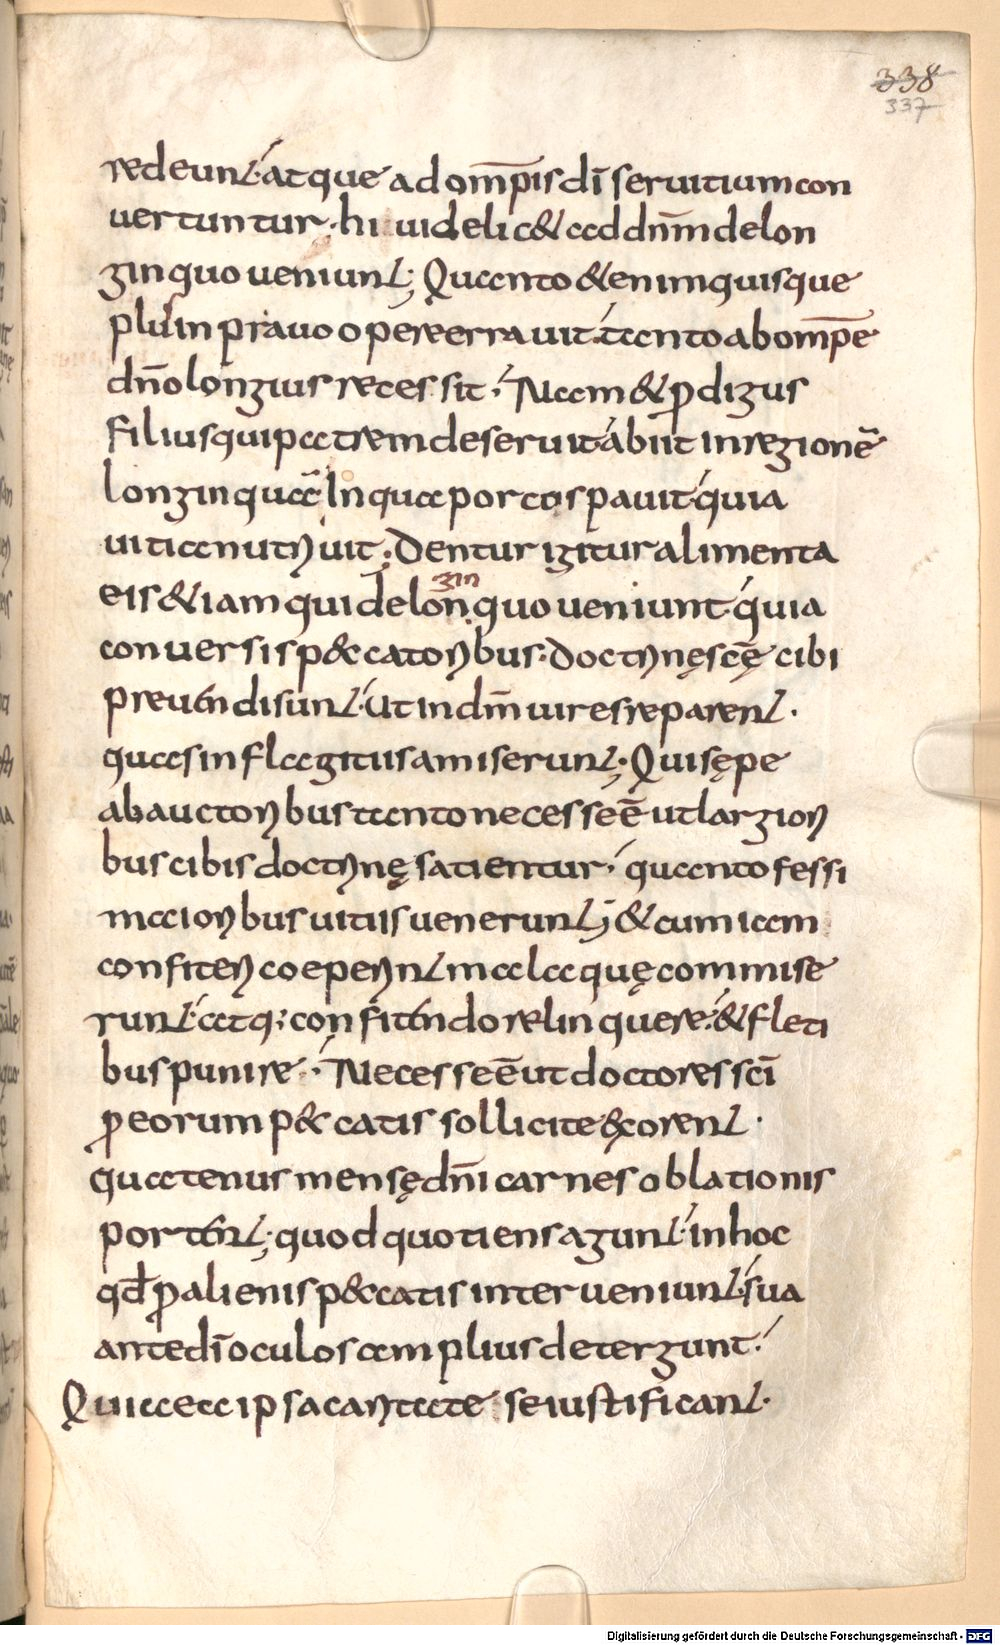 338
337
redeunt· atque ad om̅pis dī seruitium con
uertuntur· hi uidelic& ad dn̅m de lon
ginquo ueniunt; Quanto &enim quisque
plus in prauo opere errauit· tanto ab om̅pe
dn̅o longius recessit· Nam & ꝓdigus
filius qui patrem deseruit abiit in regionē
longinquā In qua porcos pauit· quia
uitia nutriuit; Dentur igitur alimenta
eis &iam qui de longinquo ueniunt· quia
conuersis p&catoribus· doctrinę scę̄ cibi
preuendi sunt· Ut in dm̅ uires reparent·
quas in flagitiis amiserunt; Qui sępe
ab auctoribus tanto necesse ē ut largiori
bus cibis doctrinę satientur· quanto fessi
maioribus uitiis uenerunt; & cum iam
confiteri coeperint mala quę commise
runt· atq; confitendo relinquere· & fleti
bus punire· Necesse ē ut doctores scī
ꝓ eorum p&catis sollicite &xorent·
quatenus mensę dn̅i carnes oblationis
portent; quod quotiens agunt· in hoc
qđ ꝓ alienis p&catis interueniunt· sua
ante dī oculos amplius detergunt·
Qui caeca ipsa caritate se iustificant·
Digitalisierung gefördert durch die Deutsche Forschungsgemeinschaft - DFG